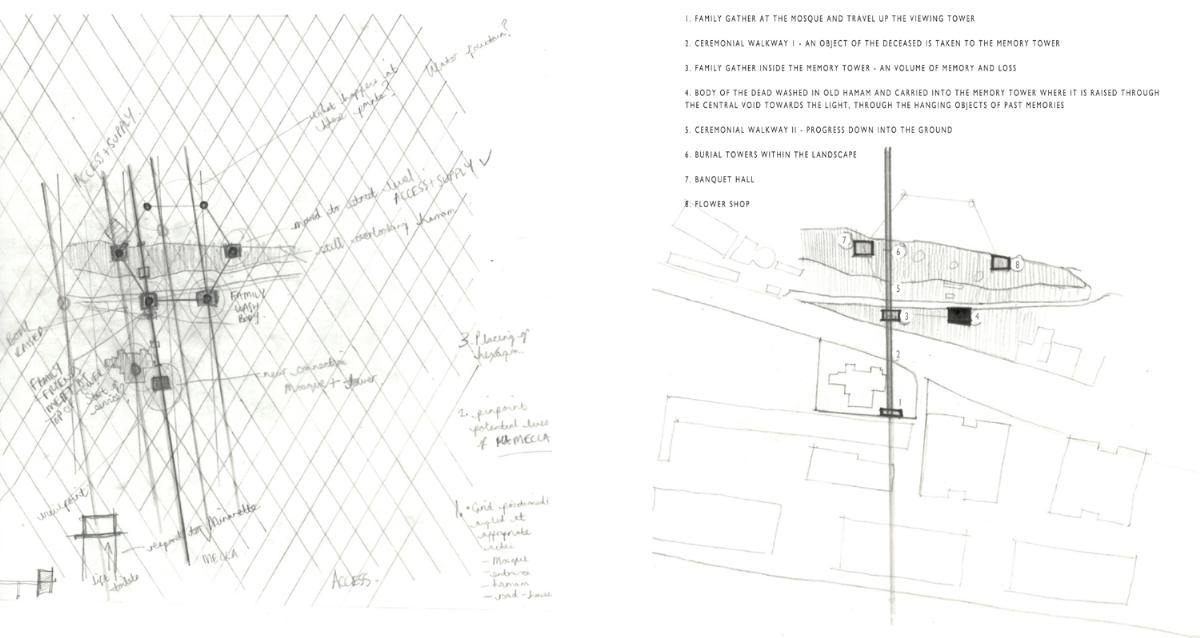 Water fountain?
what happens at
these points?
ACCESS + SUPPLY
ACCESS + SUPPLY ✓
moved to street level
still overlooking hamam
FAMILY
WASH
BODY
BODY
RAISED
FAMILY
MEET AT
TOP OF
new connection
Mosque + tower
3. Placing of
hexagon
2. pinpoint
potential lines
of MECCA
1.
angled at
appropriate
- Mosque
entrance
- hamam
viewpoint
respond to Minarette
MECCA
lift
ACCESS.
1. FAMILY GATHER AT THE MOSQUE AND TRAVEL UP THE VIEWING TOWER
2. CEREMONIAL WALKWAY I - AN OBJECT OF THE DECEASED IS TAKEN TO THE MEMORY TOWER
3. FAMILY GATHER INSIDE THE MEMORY TOWER - AN VOLUME OF MEMORY AND LOSS
4. BODY OF THE DEAD WASHED IN OLD HAMAM AND CARRIED INTO THE MEMORY TOWER WHERE IT IS RAISED THROUGH
THE CENTRAL VOID TOWARDS THE LIGHT, THROUGH THE HANGING OBJECTS OF PAST MEMORIES
5. CEREMONIAL WALKWAY II - PROGRESS DOWN INTO THE GROUND
6. BURIAL TOWERS WITHIN THE LANDSCAPE
7. BANQUET HALL
8. FLOWER SHOP
7
6
8
5
3
4
2
1